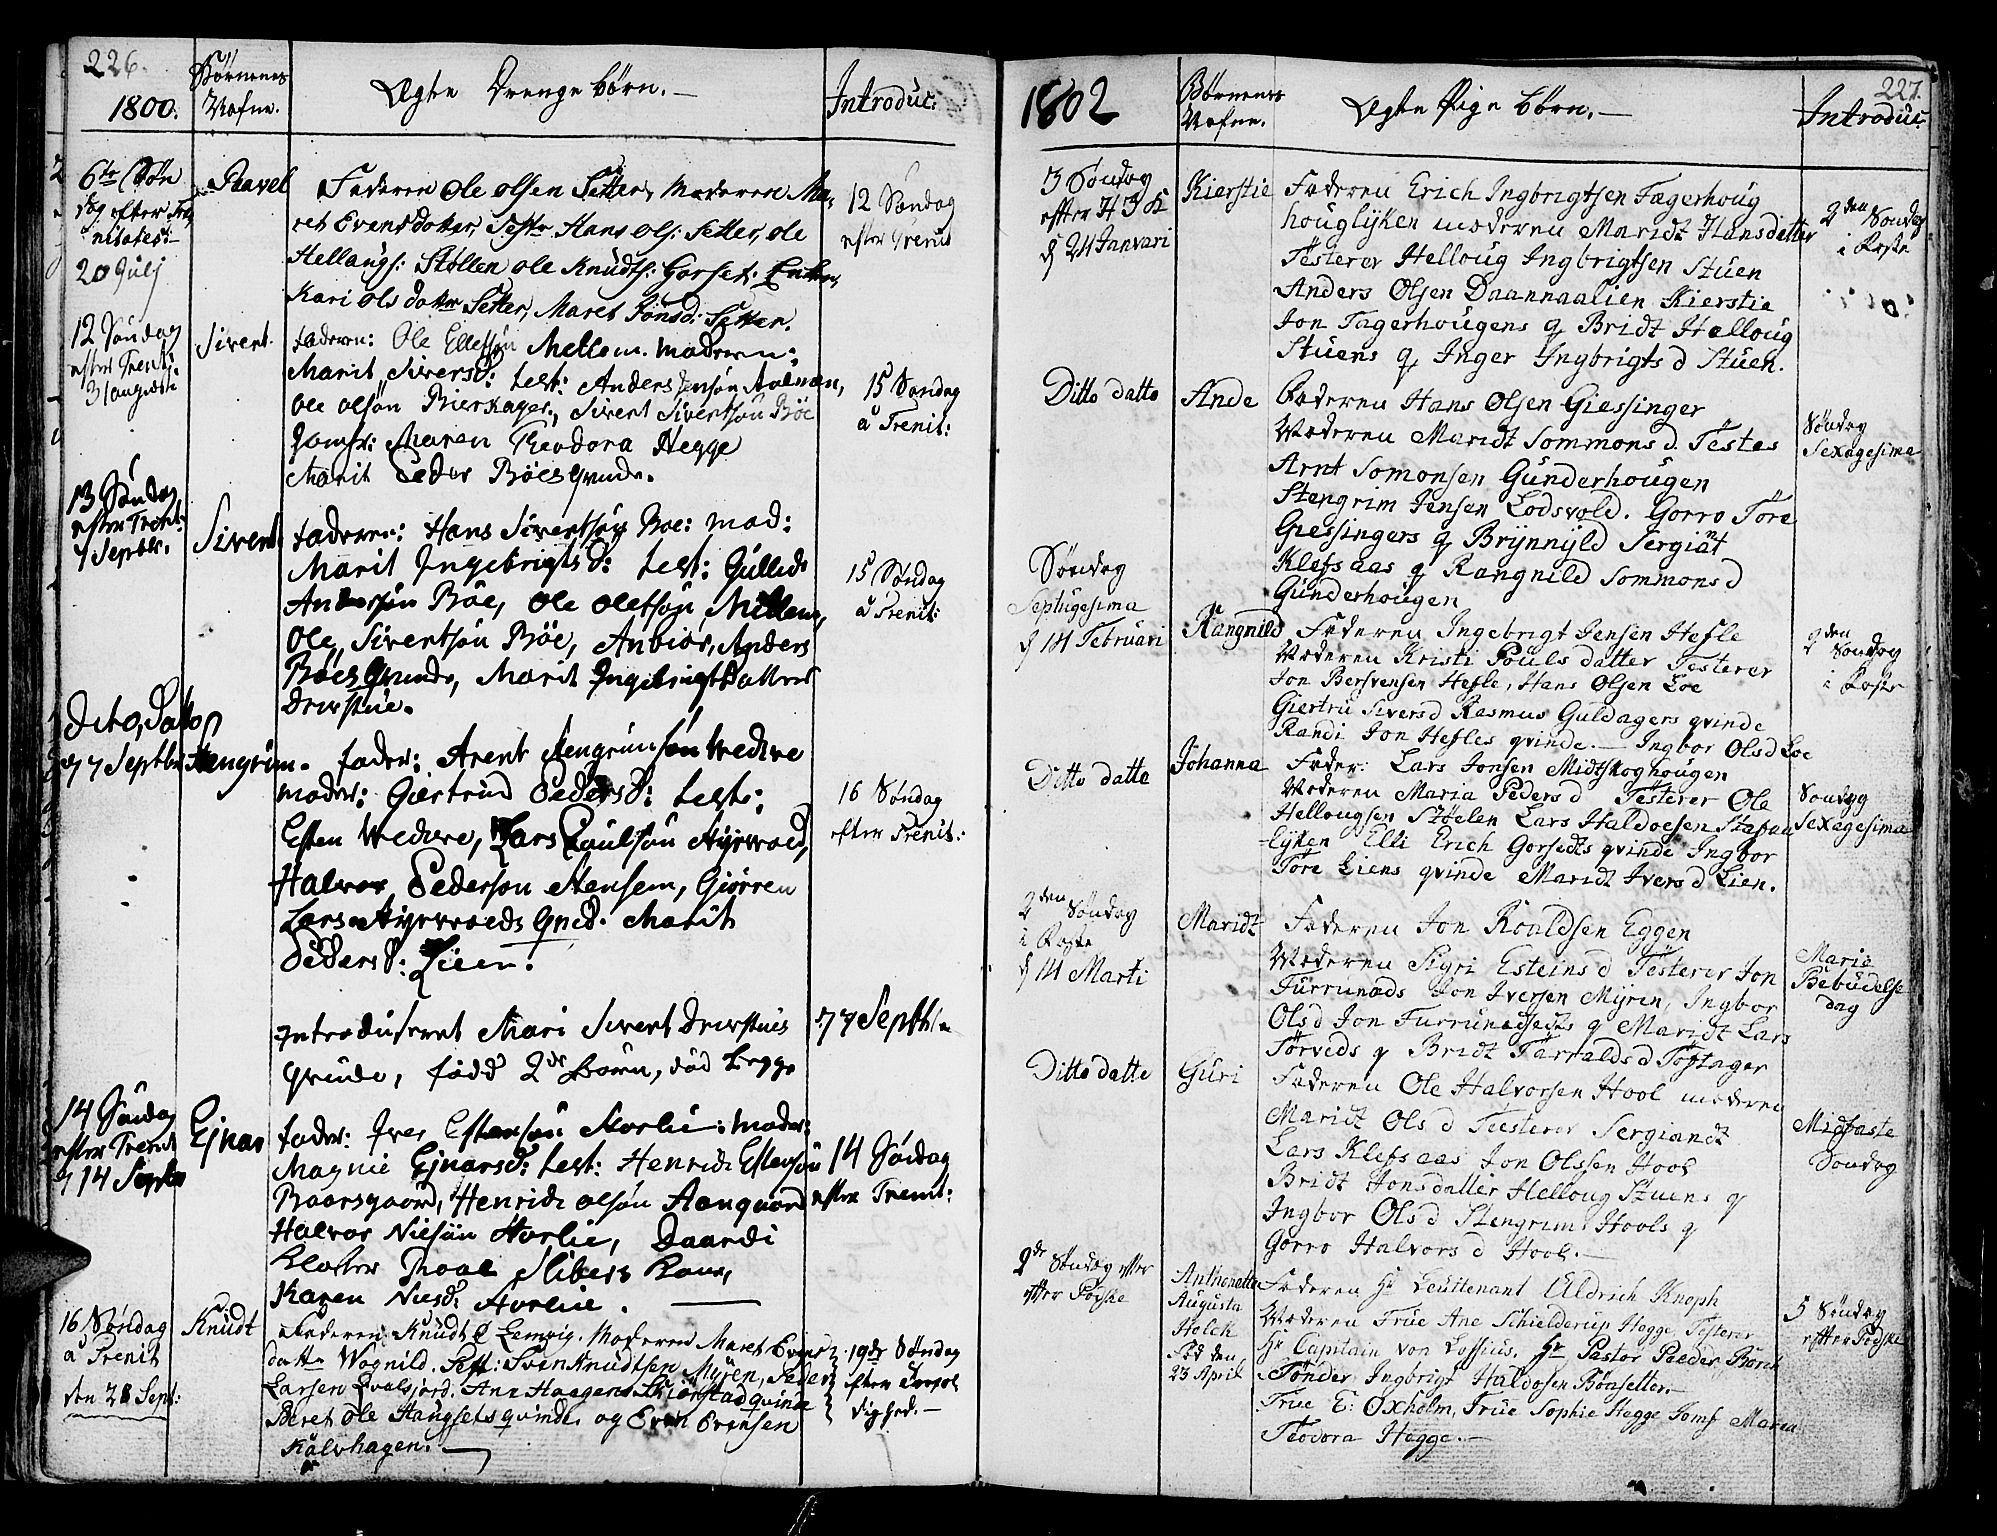 226.
1800.
Børnenes
Nafne.
Ægte Drenge børn.—
Introduc:
6te Søn
dag efter Tri
nitates:
20 Julj
Paavel
Faderen Ole Olsen Setter, Moderen Ma-
ret Evensdatter, Test: Hans Ols: Setter, Ole
Hellaugs: Støllen Ole Knudts: Gorset:
Kari Olsdatter Setter, Maret Jonsd: Setter.
12 Søndag
efter Trenit
12 Søndag
efter Trenit:
31 augusti
Sivert.
faderen: Ole Ellefsøn Mellem. moderen:
Marit Siversd: test: Anders Jensøn Aalmen,
Ole Olsøn Bierkager, Sivert Sivertsøn Böe
Jomfr: Maren Theodora Hegge
Marit Peder Böes grunde.
15 Søndag
a Trenit:
13 Søndag
efter Trenit:
7 Septbr.
Sivert
faderen: Hans Sivertsøn Boe: mod:
Marit Ingebrigtsd: test: Gullek
Andersøn Böe, Ole Olefsøn Mellem,
Ole Sivertsøn Böe, Anbior, Anders
Böes Grunde, Marit Ingebrigtsdatter
Drivstue.
15 Søndag
a Trenit:
Dito, Datto
7 Septbr
Stengrim.
fader: Arent Stengrimsøn Wedere
moder: Giertrud Pedersd: test:
Esten Wedere, Lars Poulsøn Hyrvoed,
Halvor Pedersøn Stensem, Giørren
Lars Hyrvoeds Qvid. Marit
Pedersd: Lien.
16 Søndag
efter Trenit:
Introduseret Mari Sivert Drivstues
Qvinde, född 2de Børn, död begge
7 Septbr
14 Søndag
efter Trenit
14 Septbr
Ejnar
fader: Iver Estensøn Horlie: moder:
Magnie Ejnarsd: test: Henrich Ellensøn
Baarsgaard, Henrich Olsøn Aanquard
Halvor Nielsøn Horlie, Daardi
Kloster Roal Slibers Kone,
Karen Nielsd: Horlie.
14 Søndag
efter Trenit:
16 Søndag
a Trenit
den 28 Sept:
Knudt
Faderen Knudt O Lemvig. Moderen Maret Evens
datter Wognild. Test: Sven Knudtsen Myren, Peder
Larsen Qvalsjord. Ane Haagens Skiørstad qvinde
Beret Ole Haugsets qvinde og Even Evensen
Kalvhagen.
19de Søndag
efter Trefol
dighed.—
227.
1802
Børnenes
Nafne.
Ægte Pige børn.—
Introduc:
3 Søndag
efter H 3 K
d 24 Januari
Kierstie
Faderen Erich Ingbrigtsen Fagerhoug
houglyken moderen Maridt Hansdatter
Testerer Helloug Ingbrigtsen Stuen
Anders Olsen Daannaalien Kierstie
Jon Fagerhougens q Bridt Helloug
Stuens q Inger Ingbrigts d Stuen.
2den Søndag
i Faste
Ditto datto
Ande
Faderen Hans Olsen Giessinger
Moderen Maridt Sommons d. Testes
Arnt Somonsen Gunderhougen
Stengrim Jensen Lodsvold. Gorro Tore
Giessingers q Brynnyld Sergiant
Klefsaas q Rangnild Sommons d
Gunderhougen
Søndag
Sexagesima
Søndag
Septugesima
d 14 Februari
Rangnild
Faderen Ingebrigt Jensen Hefle
Moderen Kristi Pouls datter Testerer
Jon Bersvensen Hefle, Hans Olsen Loe
Giertru Sivers d Rasmus Guldagers qvinde
Randi Jon Hefles qvinde.— Ingbor Ols d Loe
2den Søndag
i Faste
Ditto datto
Johanna
Fader: Lars Jonsen Midtskoghougen
Moderen Maria Peders d Testerer Ole
Hellougsen Støelen Lars Haldoesen Stafaa
Eyken Elli Erich Gorsedts qvinde Ingbor
Tore Liens qvinde Maridt Ivers d Lien.
Søndag
Sexagesima
2den Søndag
i Faste
d 14 Marti
Maridt
Faderen Jon Roaldsen Eggen
Moderen Sigri Esteins d Testerer Jon
Furrunæds Jon Iversen Myren, Ingbor
Ols d Jon Furrunedsets q Maridt Lars
Torveds q Bridt Tarralds d Tostager
Marie
Bebudelse
dag
Ditto datto
Guri
Faderen Ole Halvorsen Hool moderen
Maridt Ols d Testerer Sergiandt
Lars Klefsaas Jon Olssen Hool
Bridt Jonsdatter Helloug Stuens q
Ingbor Ols d Stengrim Hools q
Gorro Halvors d Hool.—
Midfaste
Søndag
2de Søndag efter
efter Paaske
Anthonetta
Augusta
Holck
Fød den
23 April
Faderen Hr Leuttenant Eldrich Knoph
Moderen Frue Ane Schielderup Hegge Testerer
Hr Capitain von Lossius. Hr Pastor Peeder Borch
Tønder, Ingbrigt Haldosen Bønsetter.—
Frue E: Oxholm, Frue Sophie Hegge Jomf Maren
Teodora Hegge.—
5 Søndag
efter Paaske